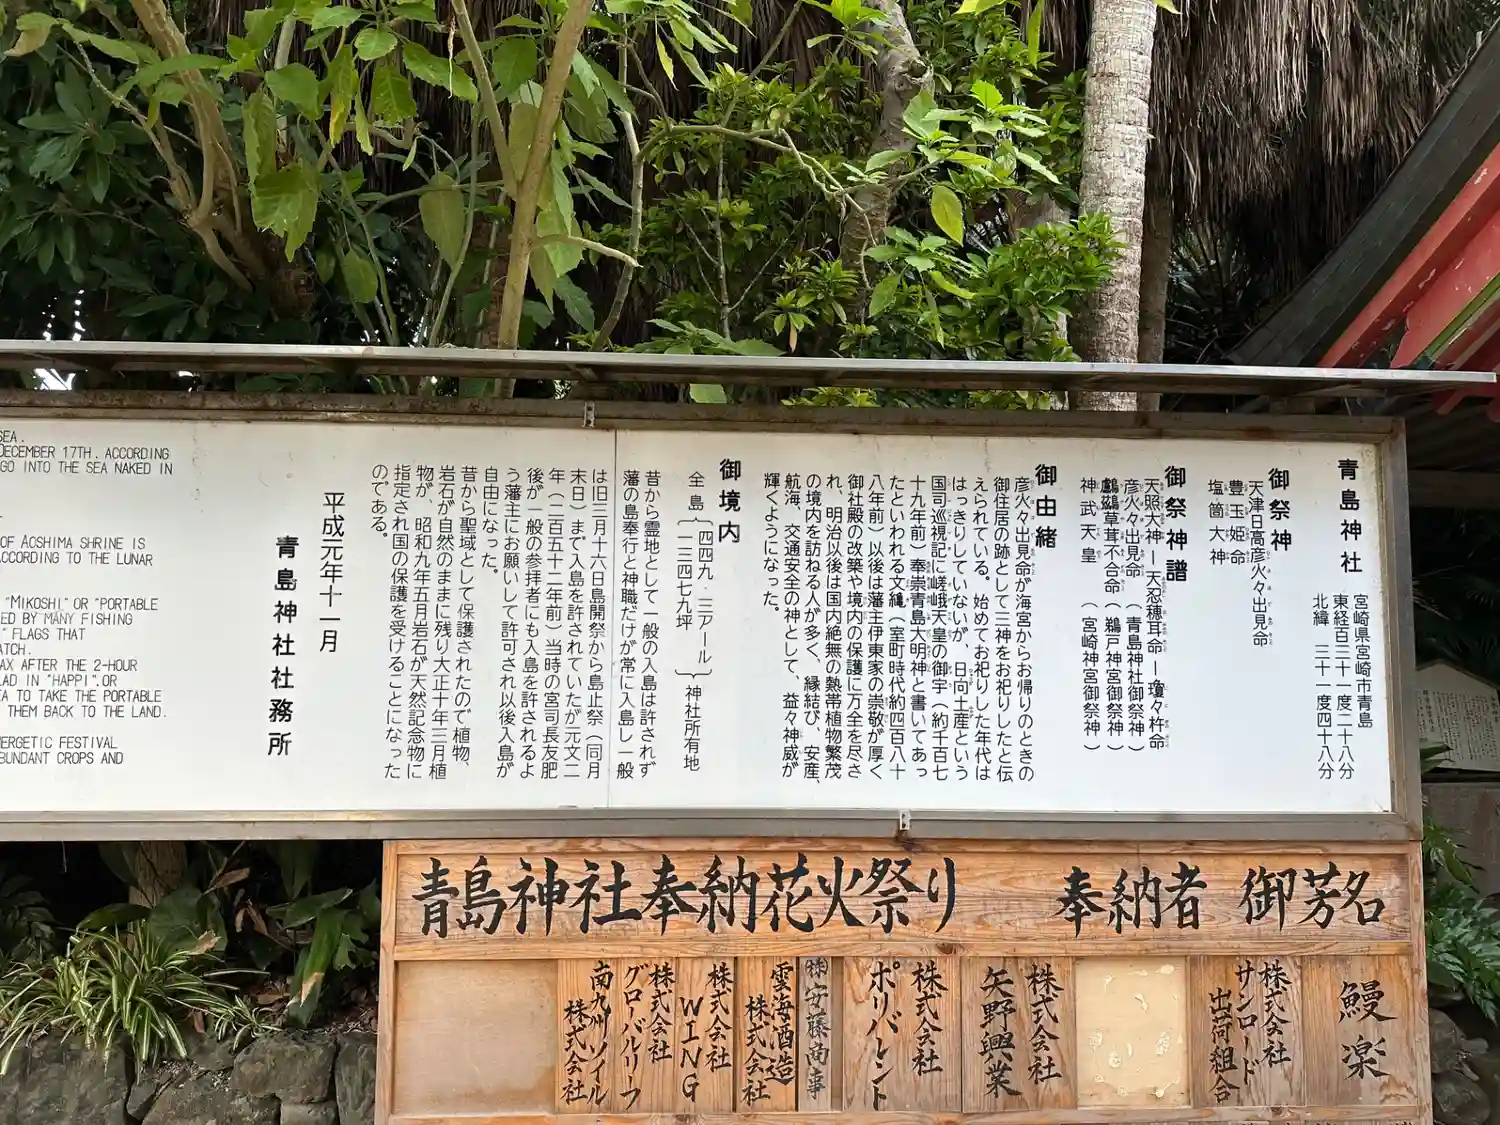 青島神社
宮崎県宮崎市青島
東経百三十一度二十八分
北緯　三十一度四十八分
御祭神
天津日高彦火々出見命
豊玉姫命
塩筒大神
御祭神譜
天照大神ー天忍穂耳命ー瓊々杵命
彦火々出見命（青島神社御祭神）
鸕鷀草葺不合命（鵜戸神宮御祭神）
神武天皇（宮崎神宮御祭神）
御由緒
彦火々出見命が海宮からお帰りのときの
御住居の跡として三神をお祀りしたと伝
えられている。始めてお祀りした年代は
はっきりしていないが、日向土産という
国司巡視記に嵯峨天皇の御宇（約千百七
十九年前）奉崇青島大明神と書いてあっ
たといわれる文亀（室町時代約四百八十
八年前）以後は藩主伊東家の崇敬が厚く
御社殿の改築や境内の保護に万全を尽さ
れ、明治以後は国内絶無の熱帯植物繁茂
の境内を訪ねる人が多く、縁結び、安産、
航海、交通安全の神として、益々神威が
輝くようになった。
御境内
全島｛四四九・三アール｝神社所有地
一三四七九坪
昔から霊地として一般の入島は許されず
藩の島奉行と神職だけが常に入島し一般
は旧三月十六日島開祭から島止祭（同月
末日）まで入島を許されていたが元文二
年（二百五十二年前）当時の宮司長友肥
後が一般の参拝者にも入島を許されるよ
う藩主にお願いして許可され以後入島が
自由になった。
昔から聖域として保護されたので植物、
岩石が自然のままに残り大正十年三月植
物が、昭和九年五月岩石が天然記念物に
指定され国の保護を受けることになった
のである。
平成元年十一月
青島神社社務所
SEA.
DECEMBER 17TH. ACCORDING
GO INTO THE SEA NAKED IN
OF AOSHIMA SHRINE IS
ACCORDING TO THE LUNAR
"MIKOSHI" OR "PORTABLE
ED BY MANY FISHING
" FLAGS THAT
ATCH.
AX AFTER THE 2-HOUR
LAD IN "HAPPI".OR
EA TO TAKE THE PORTABLE
THEM BACK TO THE LAND.
ERGETIC FESTIVAL
BUNDANT CROPS AND
青島神社奉納花火祭り　奉納者　御芳名
鰻楽
株式会社
サンロード
出荷組合
株式会社
矢野興業
株式会社
ポリバレント
㈱安藤商事
雲海酒造
株式会社
株式会社
WING
株式会社
グローバルリーフ
南九州ソイル
株式会社